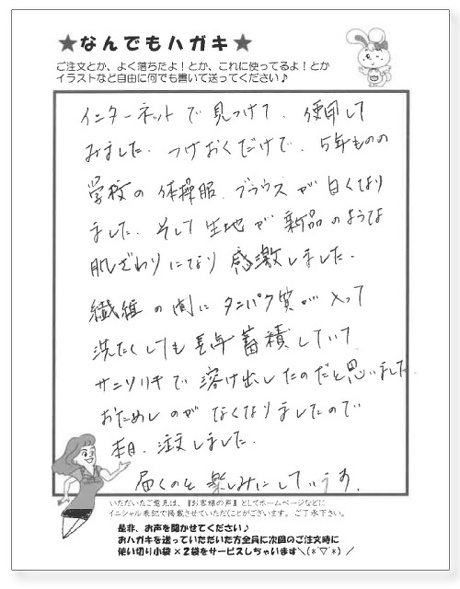 ★なんでもハガキ★
ご注文とか、よく落ちたよ！とか、これに使ってるよ！とか
イラストなど自由に何でも書いて送ってください♪
インターネットで見つけて、使用して
みました。つけおくだけで、5年ものの
学校の体操服、ブラウスが白くなり
ました。そして生地が新品のような
肌ざわりになり感激しました。
繊維の間にタンパク質が入って
洗たくしても長年蓄積していて
サニソリキで溶け出したのだと思いました。
おためしのがなくなりましたので
本日、注文しました。
届くのを楽しみにしています。
いただいたご意見は、『お客様の声』としてホームページなどに
イニシャル表記で掲載させていただくことがございます。ご了承下さい。
是非、お声を聞かせてください♪
おハガキを送っていただいた方全員に次回のご注文時に
使い切り小袋×2袋をサービスしちゃいます＼(*´▽`*)／